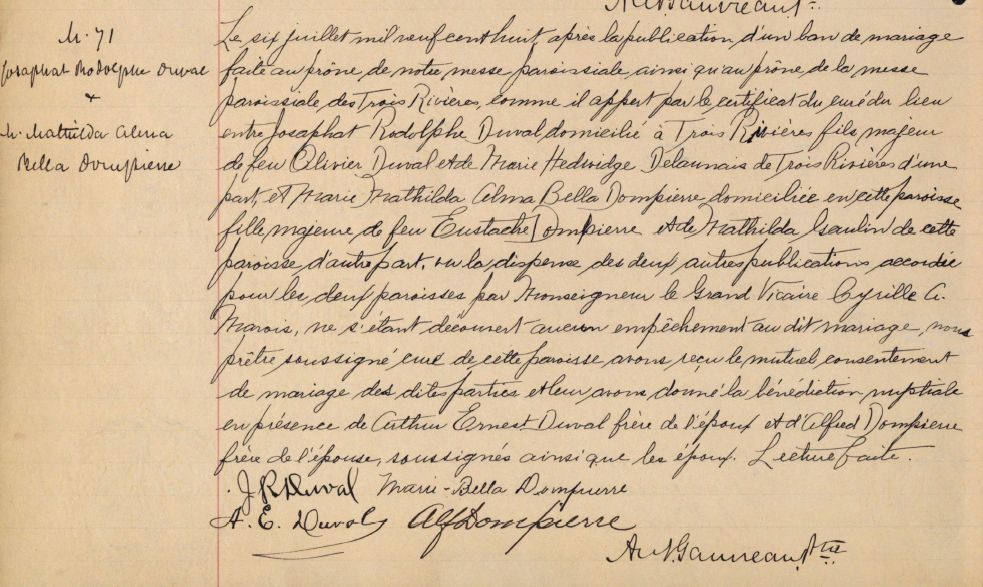 M. 71
Josaphat Rodolphe Duval
+
M. Mathilda Alma
Bella Dompierre
Le six juillet mil neuf cent huit, après la publication d'un ban de mariage
faite au prône de notre messe paroissiale, ainsi qu'au prône de la messe
paroissiale des Trois Rivières, comme il appert par le certificat du curé du lieu
entre Josaphat Rodolphe Duval domicilié à Trois Rivières fils majeur
de feu Olivier Duval et de Marie Hedwidge Delaunais de Trois Rivières d'une
part, et Marie Mathilda Alma Bella Dompierre domiciliée en cette paroisse
fille majeure de feu Eustache Dompierre et de Mathilda Gaulin de cette
paroisse d'autre part, vu la dispense des deux autres publications accordée
pour les deux paroisses par Monseigneur le Grand Vicaire Cyrille A.
Marois, ne s'étant découvert aucun empêchement au dit mariage, nous
prêtre soussigné curé de cette paroisse avons reçu le mutuel consentement
de mariage des dites parties et leur avons donné la bénédiction nuptiale
en présence de Arthur Ernest Duval frère de l'époux et d'Alfred Dompierre
frère de l'épouse, soussignés ainsi que les époux. Lecture faite.
J R Duval Marie-Bella Dompierre
A. E. Duval Alf Dompierre
Gauvreau Ptre